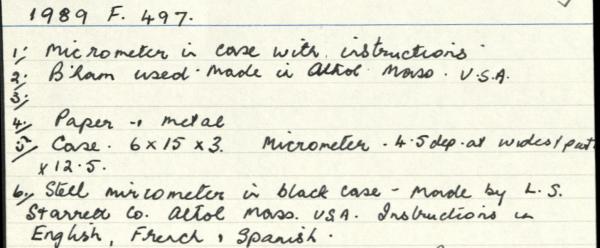 1989 F. 497.
1; Micrometer in case with instructions
2; B'ham used. Made in Althol Mass. U.S.A.
3;
4; Paper + metal
5; Case. 6 x 15 x 3. Micrometer - 4.5 dep. at widest part
x 12.5.
6; Stell mircometer in black case - Made by L.S.
Starrett Co. Althol Mass. USA. Instructions in
English, French, Spanish.